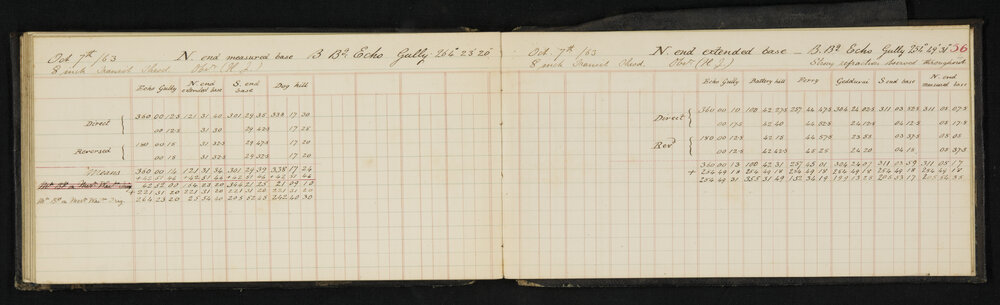 Oct 7th /63 N. end measured base B B2 Echo Gully 264° 23' 20"
8 inch Transit Theod. Obsr (R J)
Echo Gully N. end extended base S. end base Dog hill
Direct { 360 00 12.5 121 31 40 301 29 35 338 17 30
00 12.5 31 30 29 42.5 17 25
Reversed { 180 00 15 31 32.5 29 47.5 17 20
00 15 31 32.5 29 32.5 17 20
Means 360 00 14 121 31 34 301 29 39 338 17 24
+ 42 51 46 + 42 51 46 + 42 51 46 + 42 51 46
42 52 00 164 23 20 344 21 25 21 09 10
+ 221 31 20 221 31 20 221 31 20 221 31 20
264 23 20 25 54 40 205 52 45 242 40 30
Oct. 7th /63 N. end extended base - B. B2 Echo Gully 254° 49' 31" 56
8 inch Transit Theod. Obsr (R J) Steay refraction observed throughout
Echo Gully Battery hill Perry S end base N. end measured base
Direct { 360 00 10 100 42 27.5 257 45 47.5 304 24 02.5 311 03 32.5 311 05 07.5
00 17.5 42 40 44 52.5 24 12.5 04 12.5 05 17.5
Revd } 180 00 12.5 42 15 44 57.5 23 55 03 37.5 05 05
00 12.5 42 42.5 45 25 24 20 04 15 05 37.5
360 00 13 100 42 31 257 45 01 304 24 07 311 03 59 311 05 17
+ 254 49 18 254 49 18 254 49 18 254 49 18 254 49 18 254 49 18
254 49 31 355 31 49 152 34 19 199 13 25 205 53 17 205 54 35